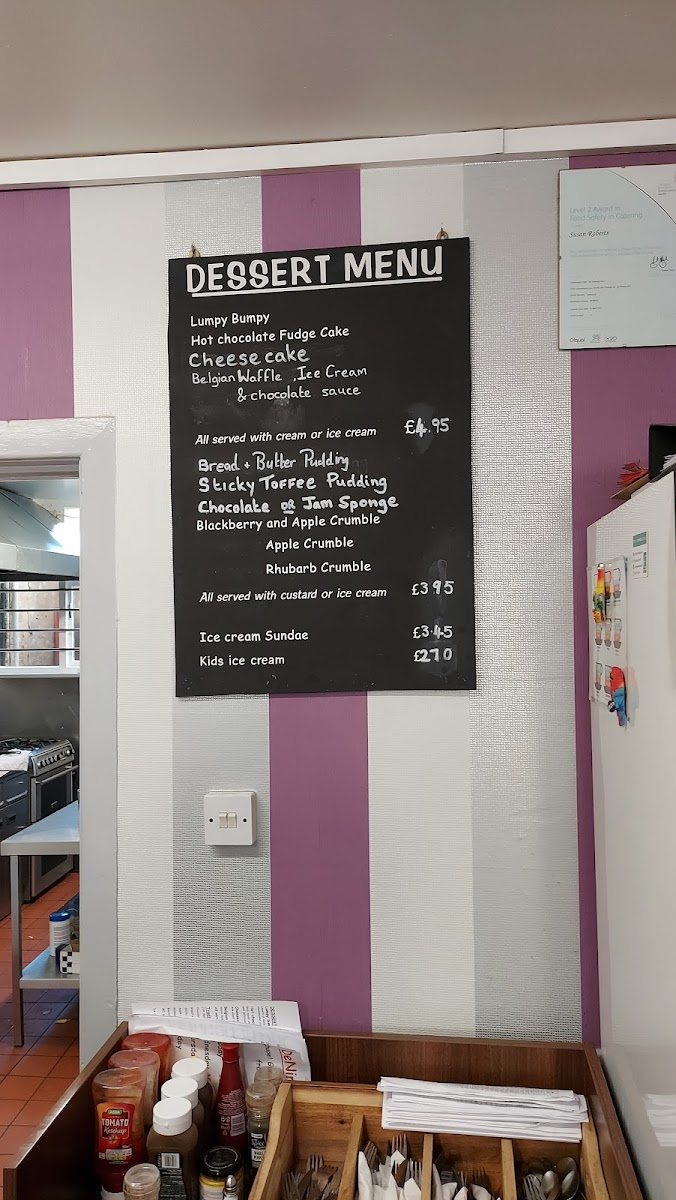 DESSERT MENU
Lumpy Bumpy
Hot chocolate Fudge Cake
Cheese cake
Belgian Waffle , Ice Cream
& chocolate sauce
All served with cream or ice cream £4.95
Bread + Butter Pudding
Sticky Toffee Pudding
Chocolate OR Jam Sponge
Blackberry and Apple Crumble
Apple Crumble
Rhubarb Crumble
All served with custard or ice cream £3.95
Ice cream Sundae £3.45
Kids ice cream £2.70
Level 2 Award in
Food Safety in Catering
Susan Roberts
Ofqual
TOMATO
Ketchup